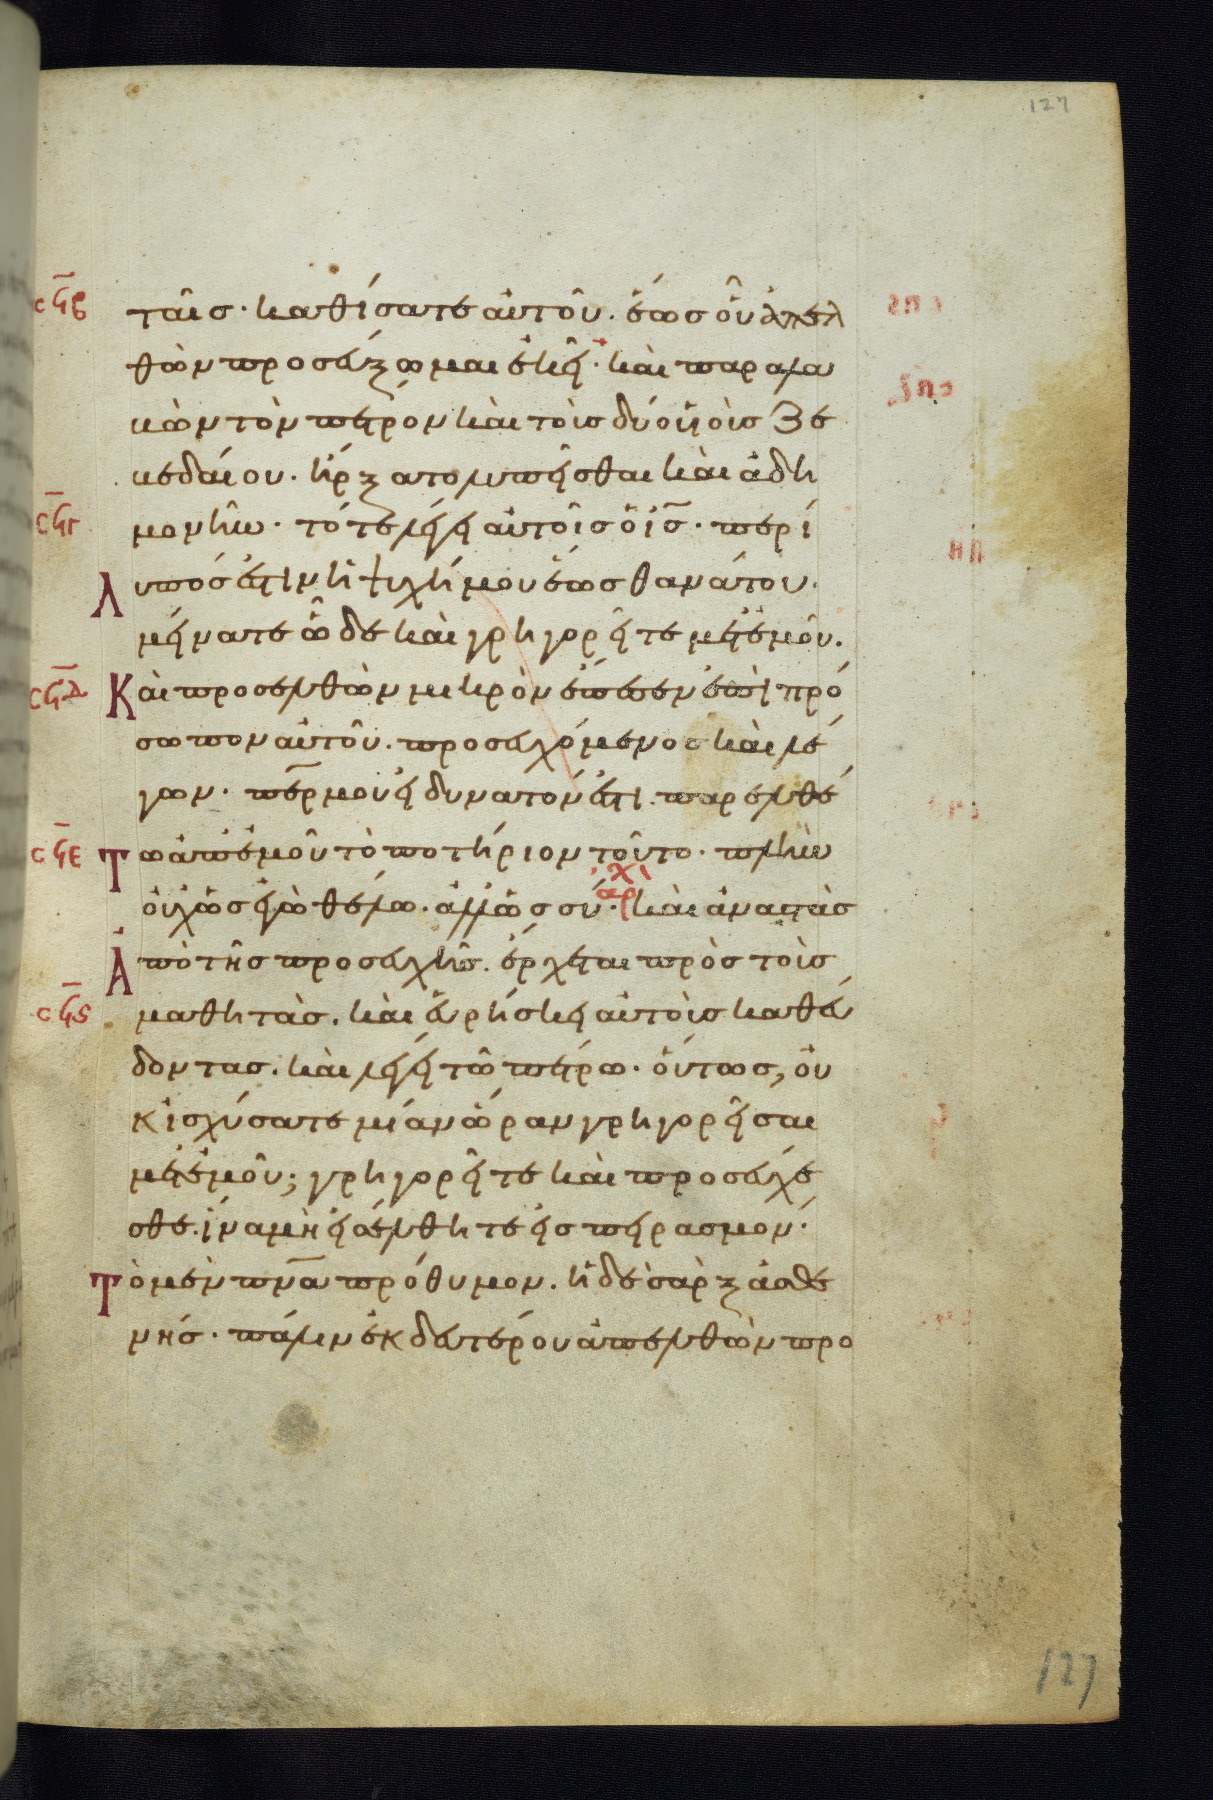 127
ταῖσ· καθίσατε αὐτοῦ. ἕωσ οὗ ἀπελ
θὼν προσεύξωμαι ἐκεῖ· καὶ παραλα
βὼν τὸν πέτρον καὶ τοὺσ δύο ὑιοὺσ ζε
βεδαίου. ἤρξατο λυπεῖσθαι καὶ ἀδη
μονεῖν· τότε λέγει αὐτοῖσ ὁ ι̅σ̅· περί
λυπόσ ἐστιν ἡ ψυχή μου ἕωσ θανάτου.
μείνατε ὧδε καὶ γρηγορεῖτε μετ' ἐμοῦ.
Καὶ προσελθὼν μικρὸν ἔπεσεν ἐπὶ πρό
σωπον αὐτοῦ. προσευχόμενοσ καὶ λέ
γων· π̅ε̅ρ̅ μου εἰ δυνατόν ἐστι. παρελθέ
τω ἀπ' ἐμοῦ τὸ ποτήριον τοῦτο· πλὴν
οὐχ ὡσ ἐγὼ θέλω. ἀλλ' ὡσ σύ· καὶ ἀναστὰσ
Ἀπὸ τῆσ προσευχῆσ. ἔρχεται πρὸσ τοὺσ
μαθητὰσ. καὶ εὑρίσκει αὐτοὺσ καθεύ
δοντασ. καὶ λέγει τῶ πέτρω. οὕτωσ, οὐ
κ ἰσχύσατε μίαν ὥραν γρηγορεῖσαι
μετ' ἐμοῦ; γρηγορεῖτε καὶ προσεύχε
σθε. ἵνα μὴ εἰσέλθητε εἰσ πειρασμόν·
Τὸ μὲν π̅ν̅α̅ πρόθυμον. ἡ δὲ σὰρξ ἀσθε
νήσ· πάλιν ἐκ δευτέρου ἀπελθὼν προ
127